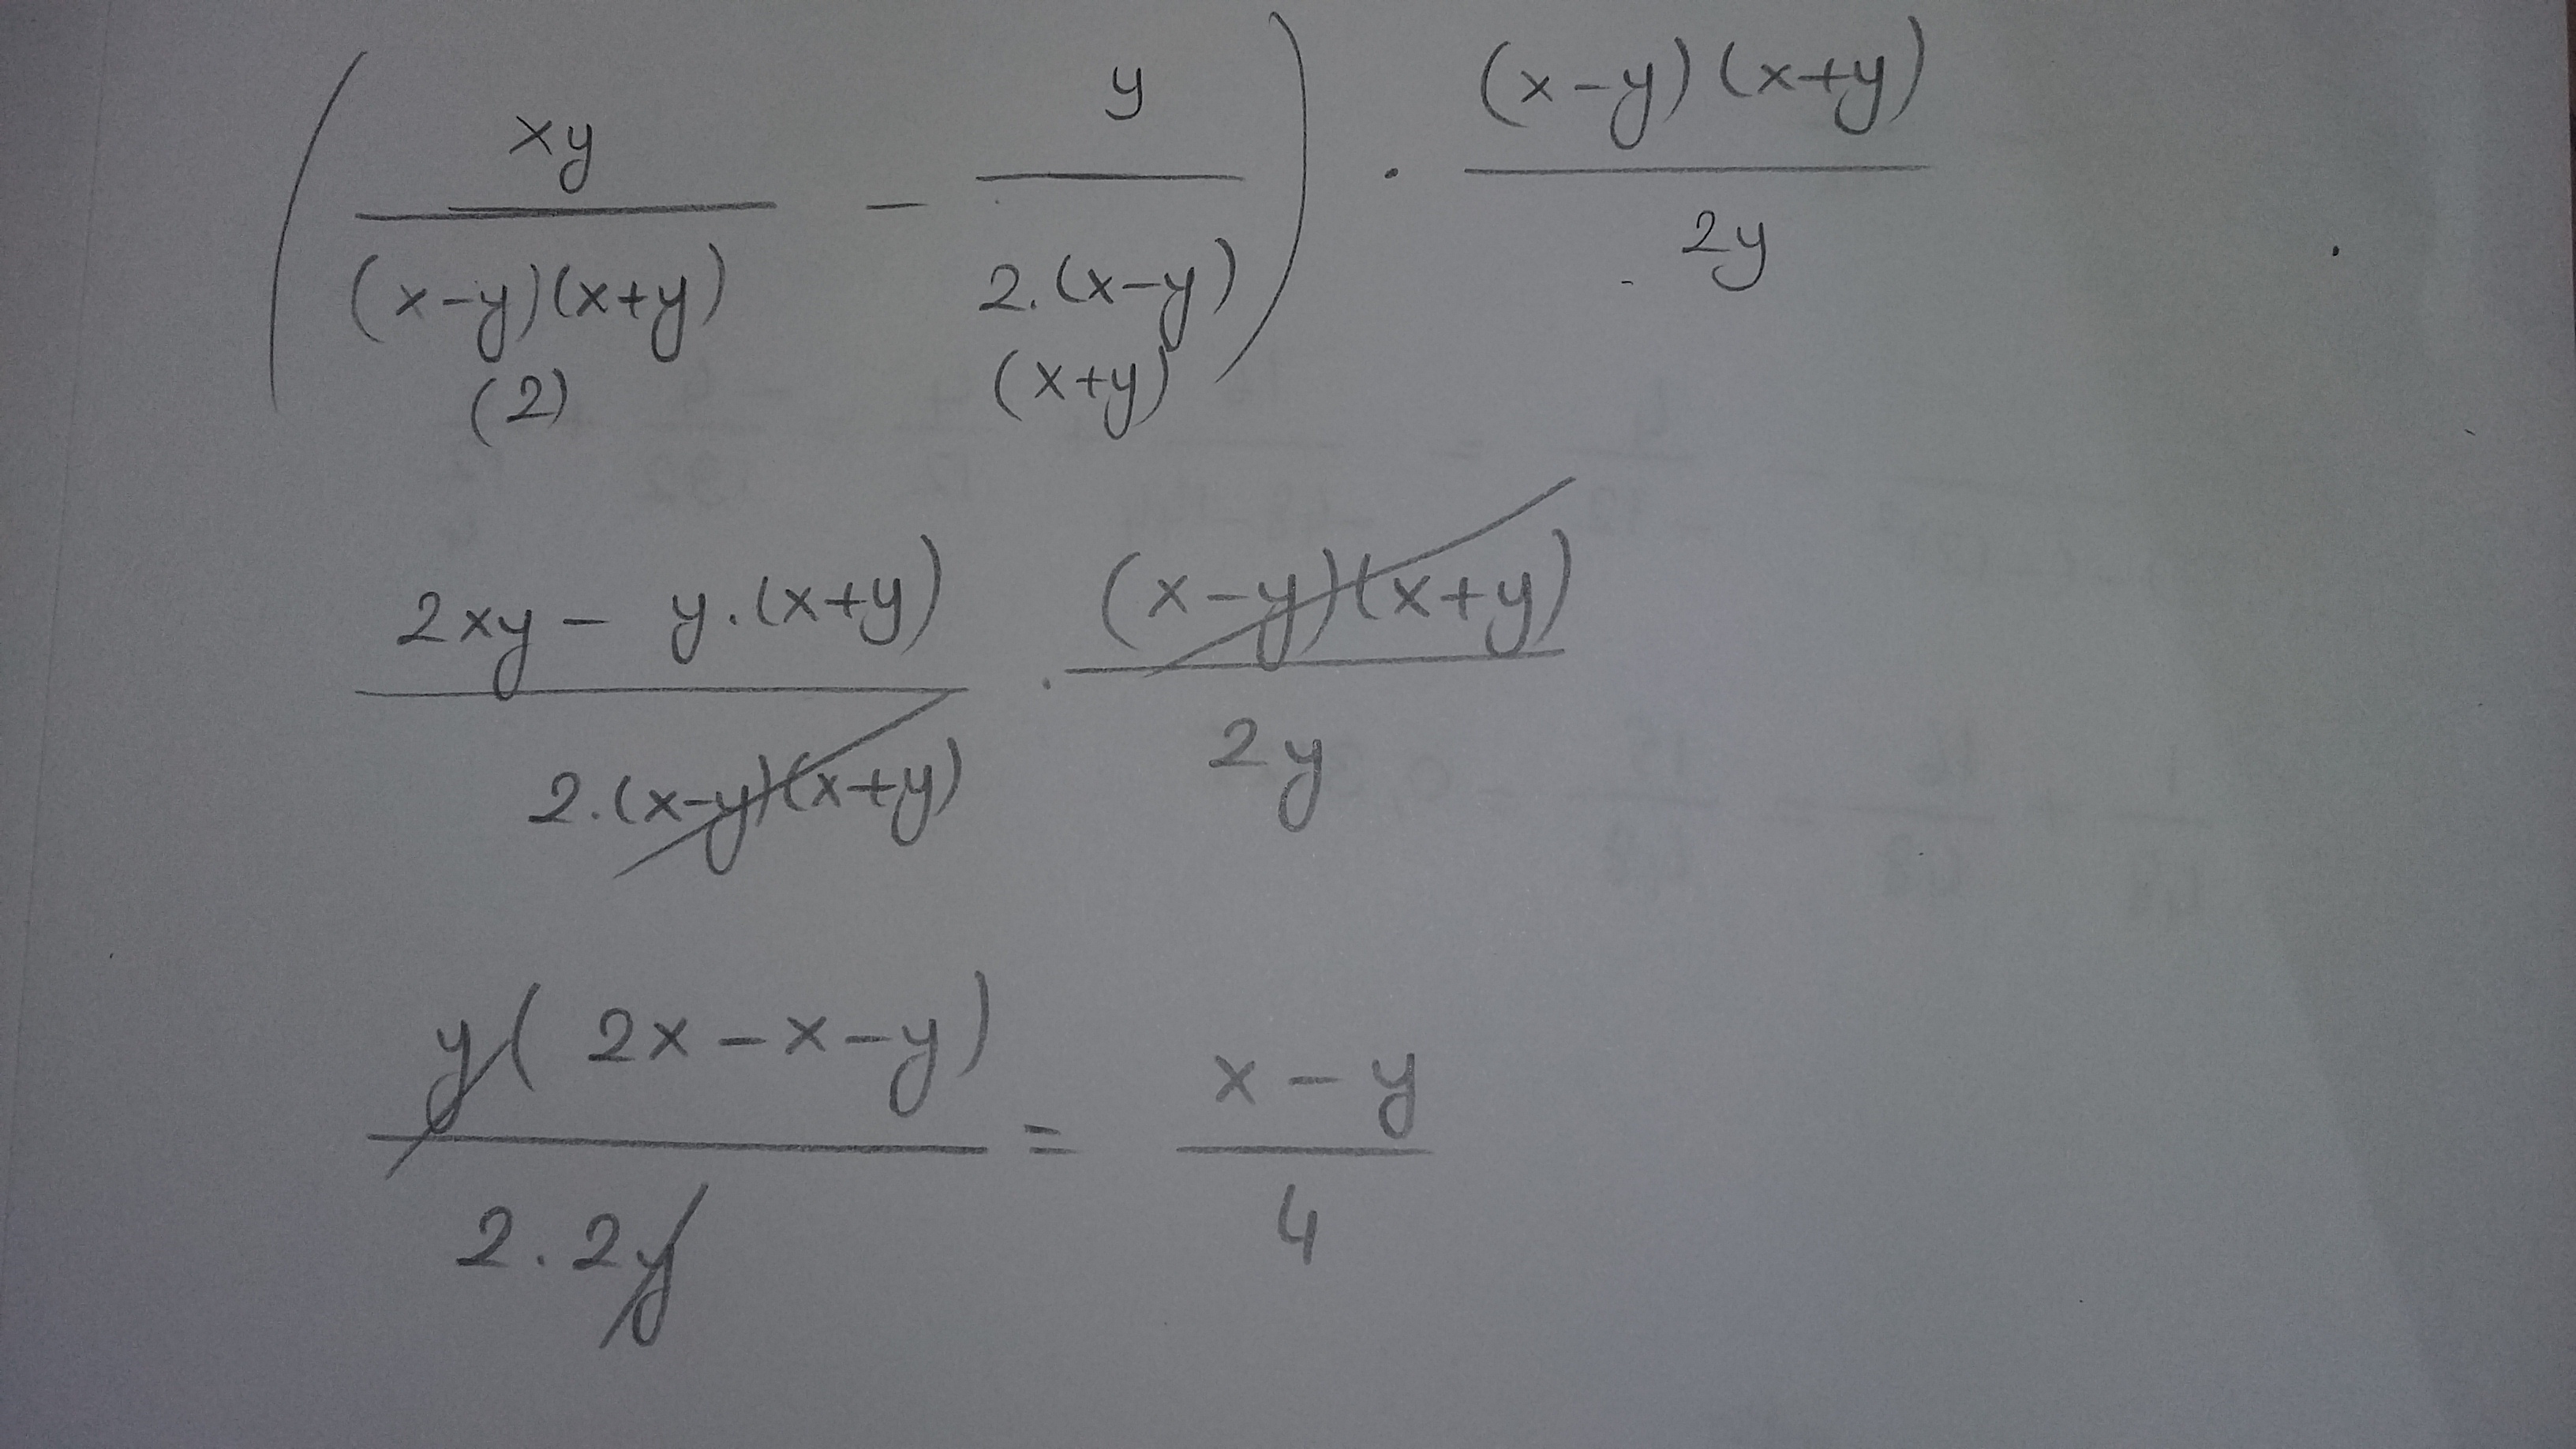 ( xy / (x-y)(x+y) - y / 2.(x-y) ) . (x-y)(x+y) / 2y
(2) (x+y)
2xy - y.(x+y) / 2.(x-y)(x+y) . (x-y)(x+y) / 2y
y(2x-x-y) / 2.2y = x-y / 4